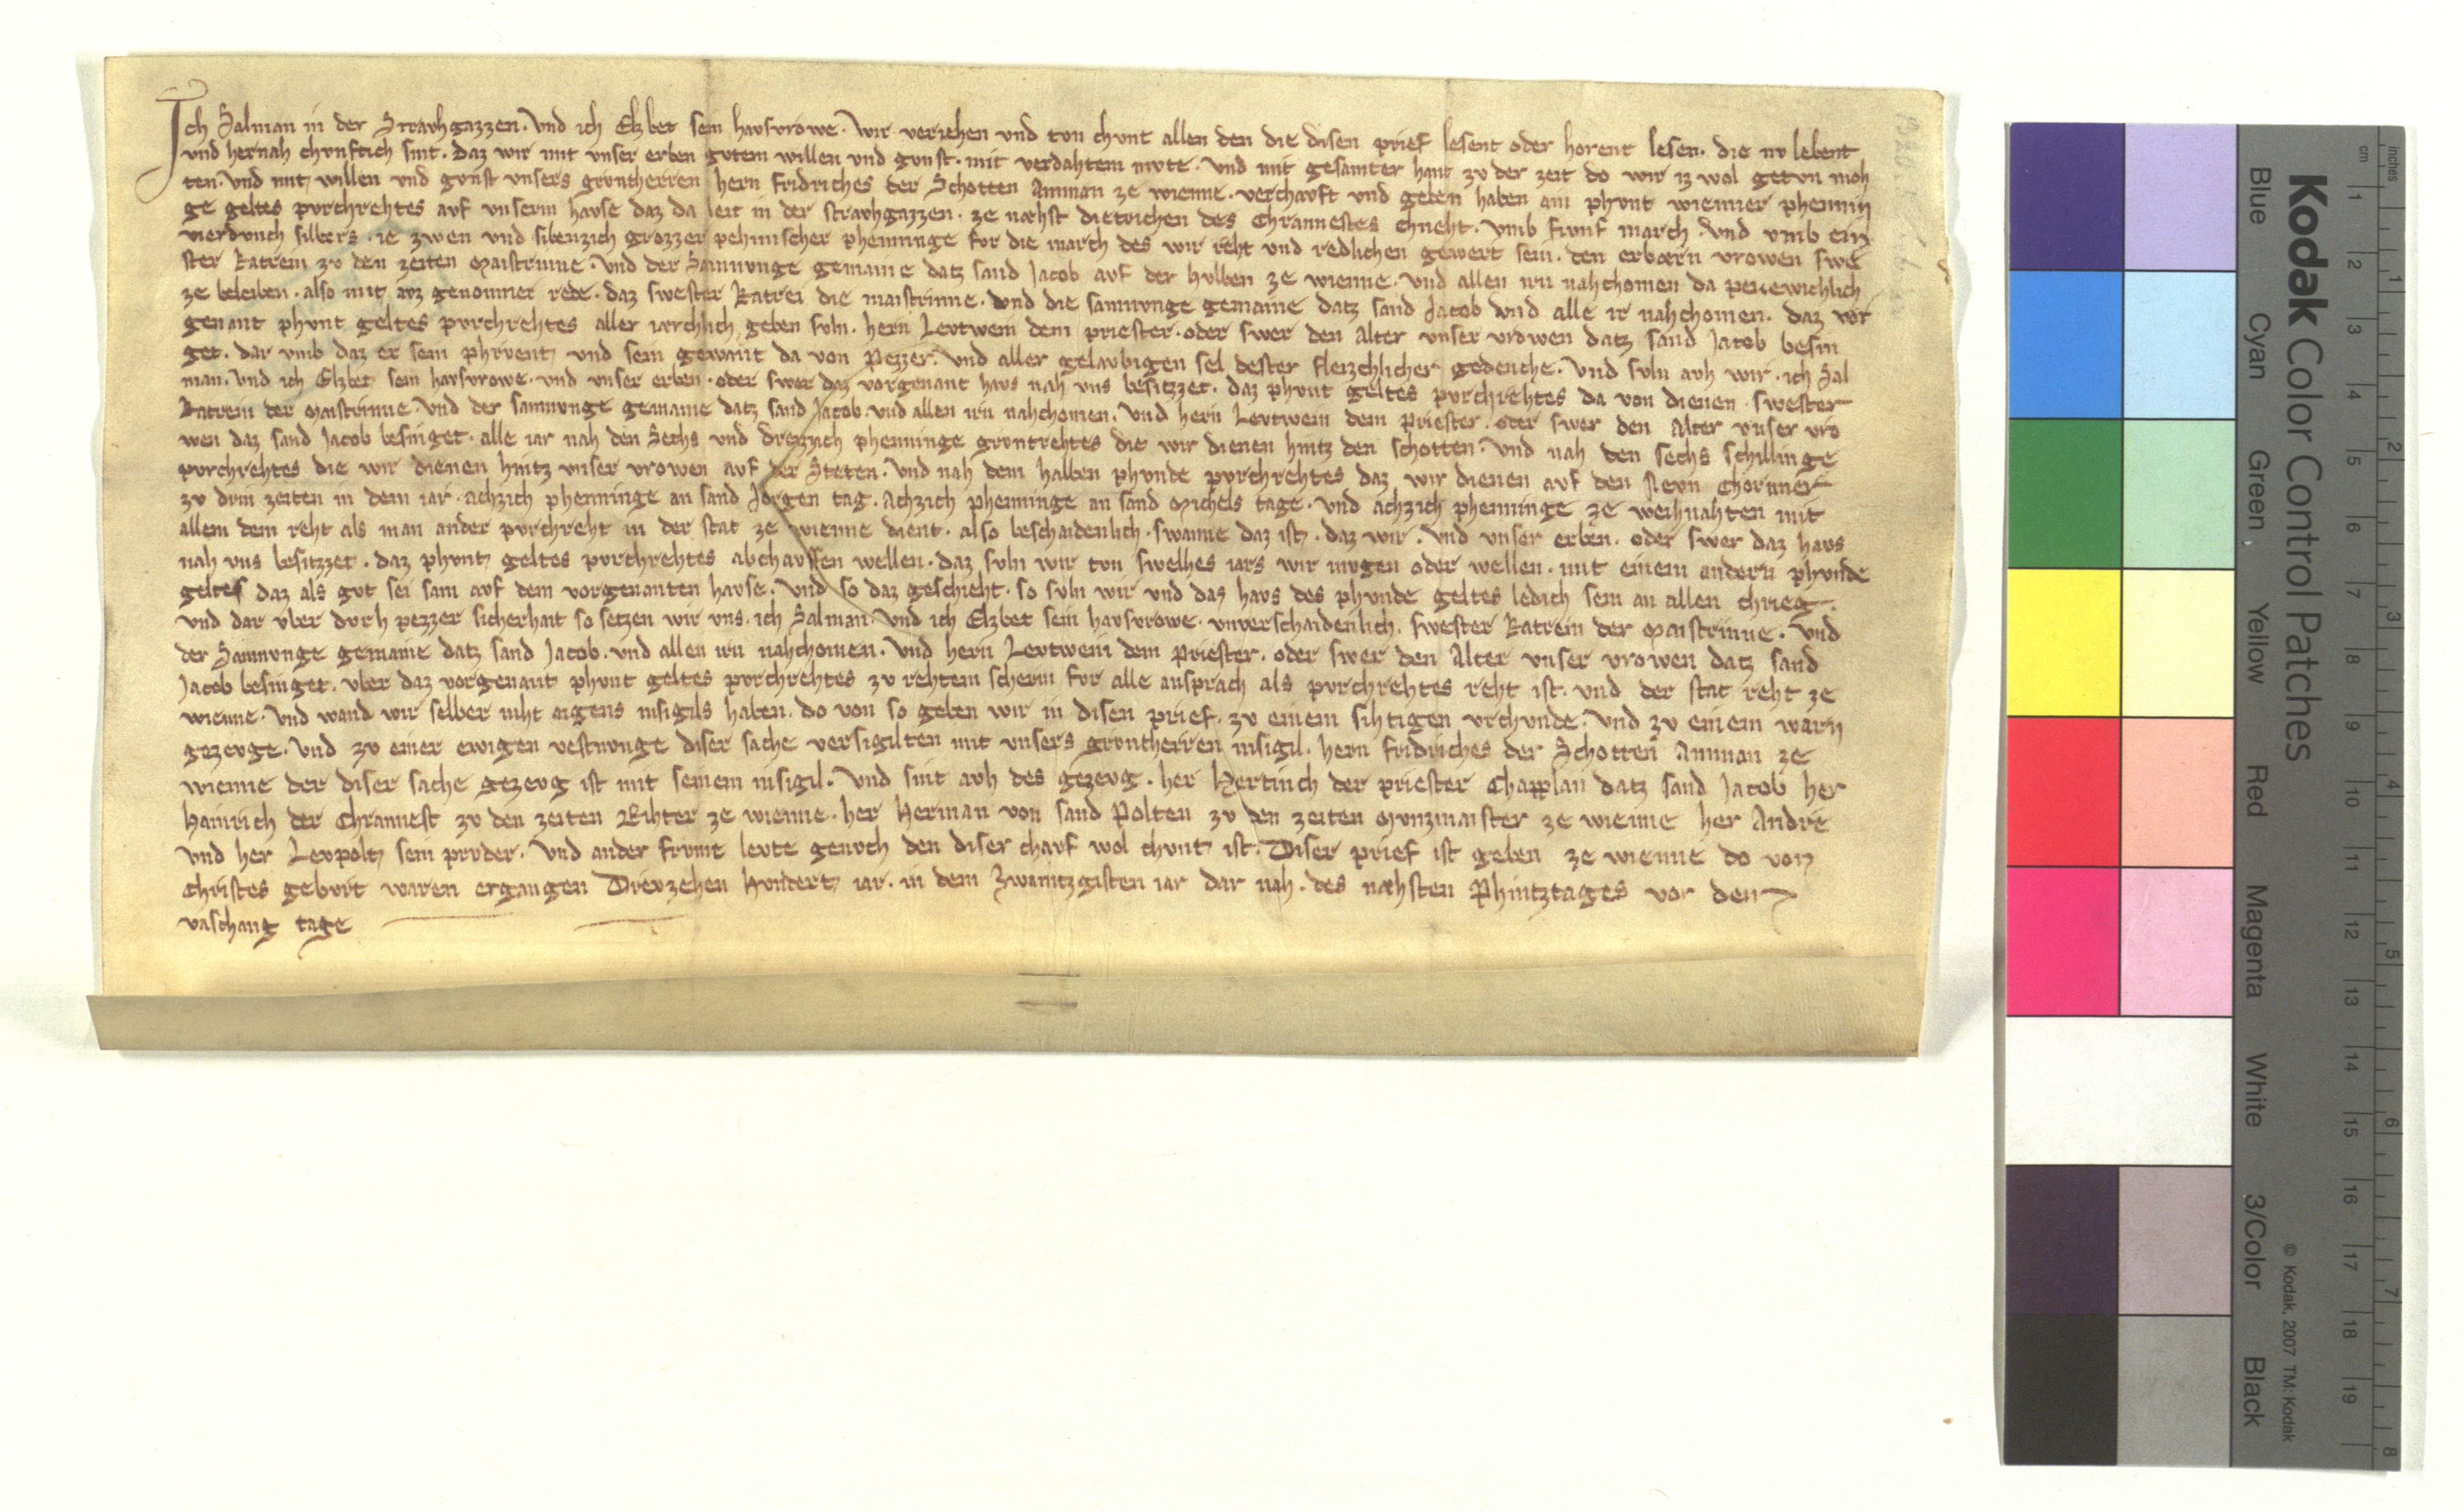 Ich Salman in der Stravhgazzen. Vnd ich Elzbet sein havsvrowe. Wir veriehen vnd tvn chvnt allen den die disen prief lesent oder horent lesen. die nv lebent
vnd hernah chvnftich sint. daz wir mit vnser erben gvtem willen vnd gvnst. mit verdahtem mvte. Vnd mit gesamter hant zv der zeit do wir iz wol getvn moh
ten. Vnd mit willen vnd gvnst vnsers grvntherren hern Fridriches der Schotten Amman ze wienne. verchavft vnd geben haben ain phvnt wienner phennin
ge geltes pvrchrehtes avf vnserm havse daz da leit in der stravhgazzen. ze næhst dietrichen des Chrannestes chneht. vmb fivnf march. Vnd vmb ein
vierdvnch silbers. ie zwen vnd sibenzich grozzer pehmischer phenninge fvr die march des wir reht vnd redlichen gewert sein. den erbærn vrowen swe
ster Katrein zv den zeiten Maistrinne. Vnd der Samnvnge gemaine datz sand Jacob avf der hvlben ze wienne. Vnd allen irn nahchomen da pei ewichlich
ze beleiben. also mit avz genomner rede. daz swester Katrei die maistrinne. Vnd die samnvnge gemaine datz sand Jacob vnd alle ir nahchomen. daz vor
genant phvnt geltes pvrchrehtes aller iærchlich geben svln. hern Levtwein dem priester. oder swer den alter vnser vrowen datz sand Jacob besin
get. dar vmb daz er sein phrvent vnd sein gewant da von pezzer. Vnd aller gelavbigen sel dester fleizchlicher gedenche. Vnd svln avh wir. ich Sal
man. Vnd ich Elzbet sein havsvrowe. vnd vnser erben. oder swer daz vorgenant havs nah vns besitzzet. daz phvnt geltes pvrchrehtes da von dienen. swester
Katrein der Maistrinne. Vnd der samnvnge gemaine datz sand Jacob. vnd allen irn nahchomen. Vnd hern Levtwein dem Priester. oder swer den Alter vnser vro
wen daz sand Jacob besinget. alle iar nah den Sechs vnd dreizzich phenninge grvntrehtes die wir dienen hintz den schotten. Vnd nah den sechs schillinge
pvrchrehtes die wir dienen hintz vnser vrowen avf der Steten. Vnd nah dem halben phvnde pvrchrehtes daz wir dienen avf den Nevn Chornner
zv drin zeiten in dem iar. achzich phenninge an sand Jorgen tag. Achzich phenninge an sand Michels tage. Vnd achzich phenninge ze weihnahten mit
allem dem reht als man ander pvrchreht in der stat ze wienne dient. also beschaidenlich. swanne daz ist. daz wir. Vnd vnser erben. oder swer daz havs
nah vns besitzzet. daz phvnt geltes pvrchrehtes abchavffen wellen. daz svln wir tvn swelhes iars wir mvgen oder wellen. mit einem andern phvnde
geltes daz als gvt sei sam avf dem vorgenanten havse. Vnd so daz geschieht. so svln wir vnd das havs des phvnde geltes ledich sein an allen chrieg.
Vnd dar vber dvrh pezzer sicherhait so setzen wir vns. ich Salman. Vnd ich Elzbet sein havsvrowe. vnverschaidenlich. swester Katrein der Maistrinne. Vnd
der Samnvnge gemaine datz sand Jacob. vnd allen irn nahchomen. Vnd hern Levtwein dem priester. oder swer den Alter vnser vrowen datz sand
Jacob besinget. vber daz vorgenant phvnt geltes pvrchrehtes zv rehtem scherm fvr alle ansprach als pvrchrehtes reht ist. vnd der stat reht ze
wienne. Vnd wand wir selber niht aigens insigils haben. do von so geben wir in disen prief. zv einem sihtigen vrchvnde. Vnd zv einem warn
gezevge. Vnd zv einer ewigen vestnvnge diser sache versigilten mit vnsers grvntherren insigil. hern Fridriches der Schotten Amman ze
wienne der diser sache gezevg ist mit seinem insigil. Vnd sint avh des gezevg. her Hertnich der priester Chapplan datz sand Jacob her
Hainrich der Chrannest zv den zeiten Rihter ze wienne. her Herman von sand Polten zv den zeiten Mvnzmaister ze wienne her Andre
Vnd her Levpolt sein prvder. Vnd ander frvmt levte genvch den diser chavf wol chvnt ist. Diser prief ist geben ze wienne do von
Christes gebvrt waren ergangen Drevzehen Hvndert iar. in dem Zwaintzgisten iar dar nah. des næhsten Phintztages vor dem
vaschang tage
Kodak Color Control Patches
Blue Cyan Green Yellow Red Magenta White 3/Color Black
© Kodak, 2007 TM: Kodak
cm 1 2 3 4 5 6 7 8 9 10 11 12 13 14 15 16 17 18 19
inches 1 2 3 4 5 6 7 8